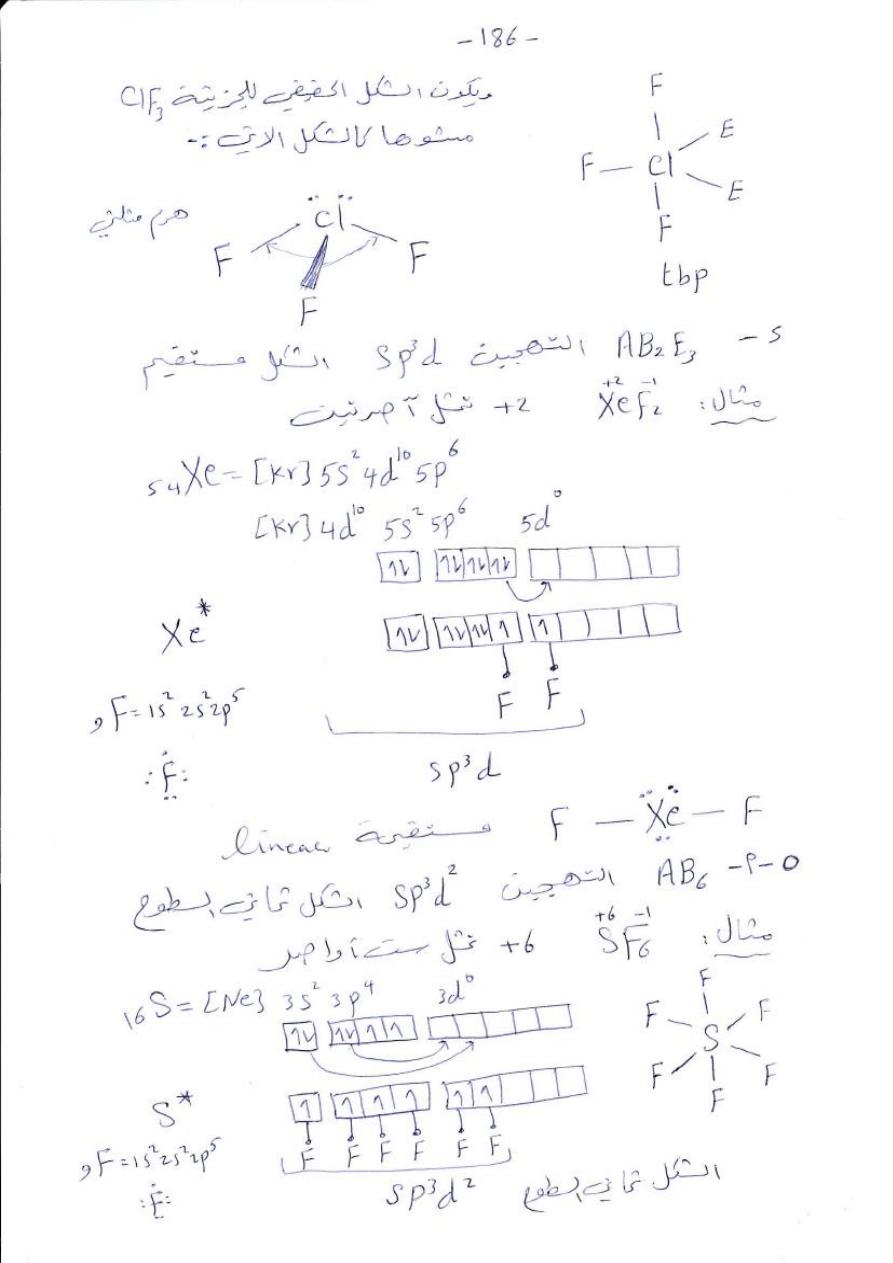 -186-
ويكون الشكل الحقيقي للجزيئة ClF₃
مشوها كالشكل الاتي :-
F
F — Cl E
E
F
tbp
هرم مثلثي
Cl
F F
F
s - AB₂E₃ التهجين sp³d الشكل مستقيم
مثال: XeF₂ +2 -1 +2 تمثل آصرتين
₅₄Xe = [Kr] 5s² 4d¹⁰ 5p⁶
[Kr] 4d¹⁰ 5s² 5p⁶ 5d⁰
Xe*
F F
₉F = 1s² 2s² 2p⁵
:F:
sp³d
F — Xe — F مستقيمة linear
٥-٩- AB₆ التهجين sp³d² الشكل ثماني السطوح
مثال: SF₆ +6 -1 +6 تمثل ست أواصر
₁₆S = [Ne] 3s² 3p⁴ 3d⁰
F
F F
S
F F
F
S*
F F F F F F
₉F = 1s² 2s² 2p⁵
:F:
sp³d²
الشكل ثماني السطوح